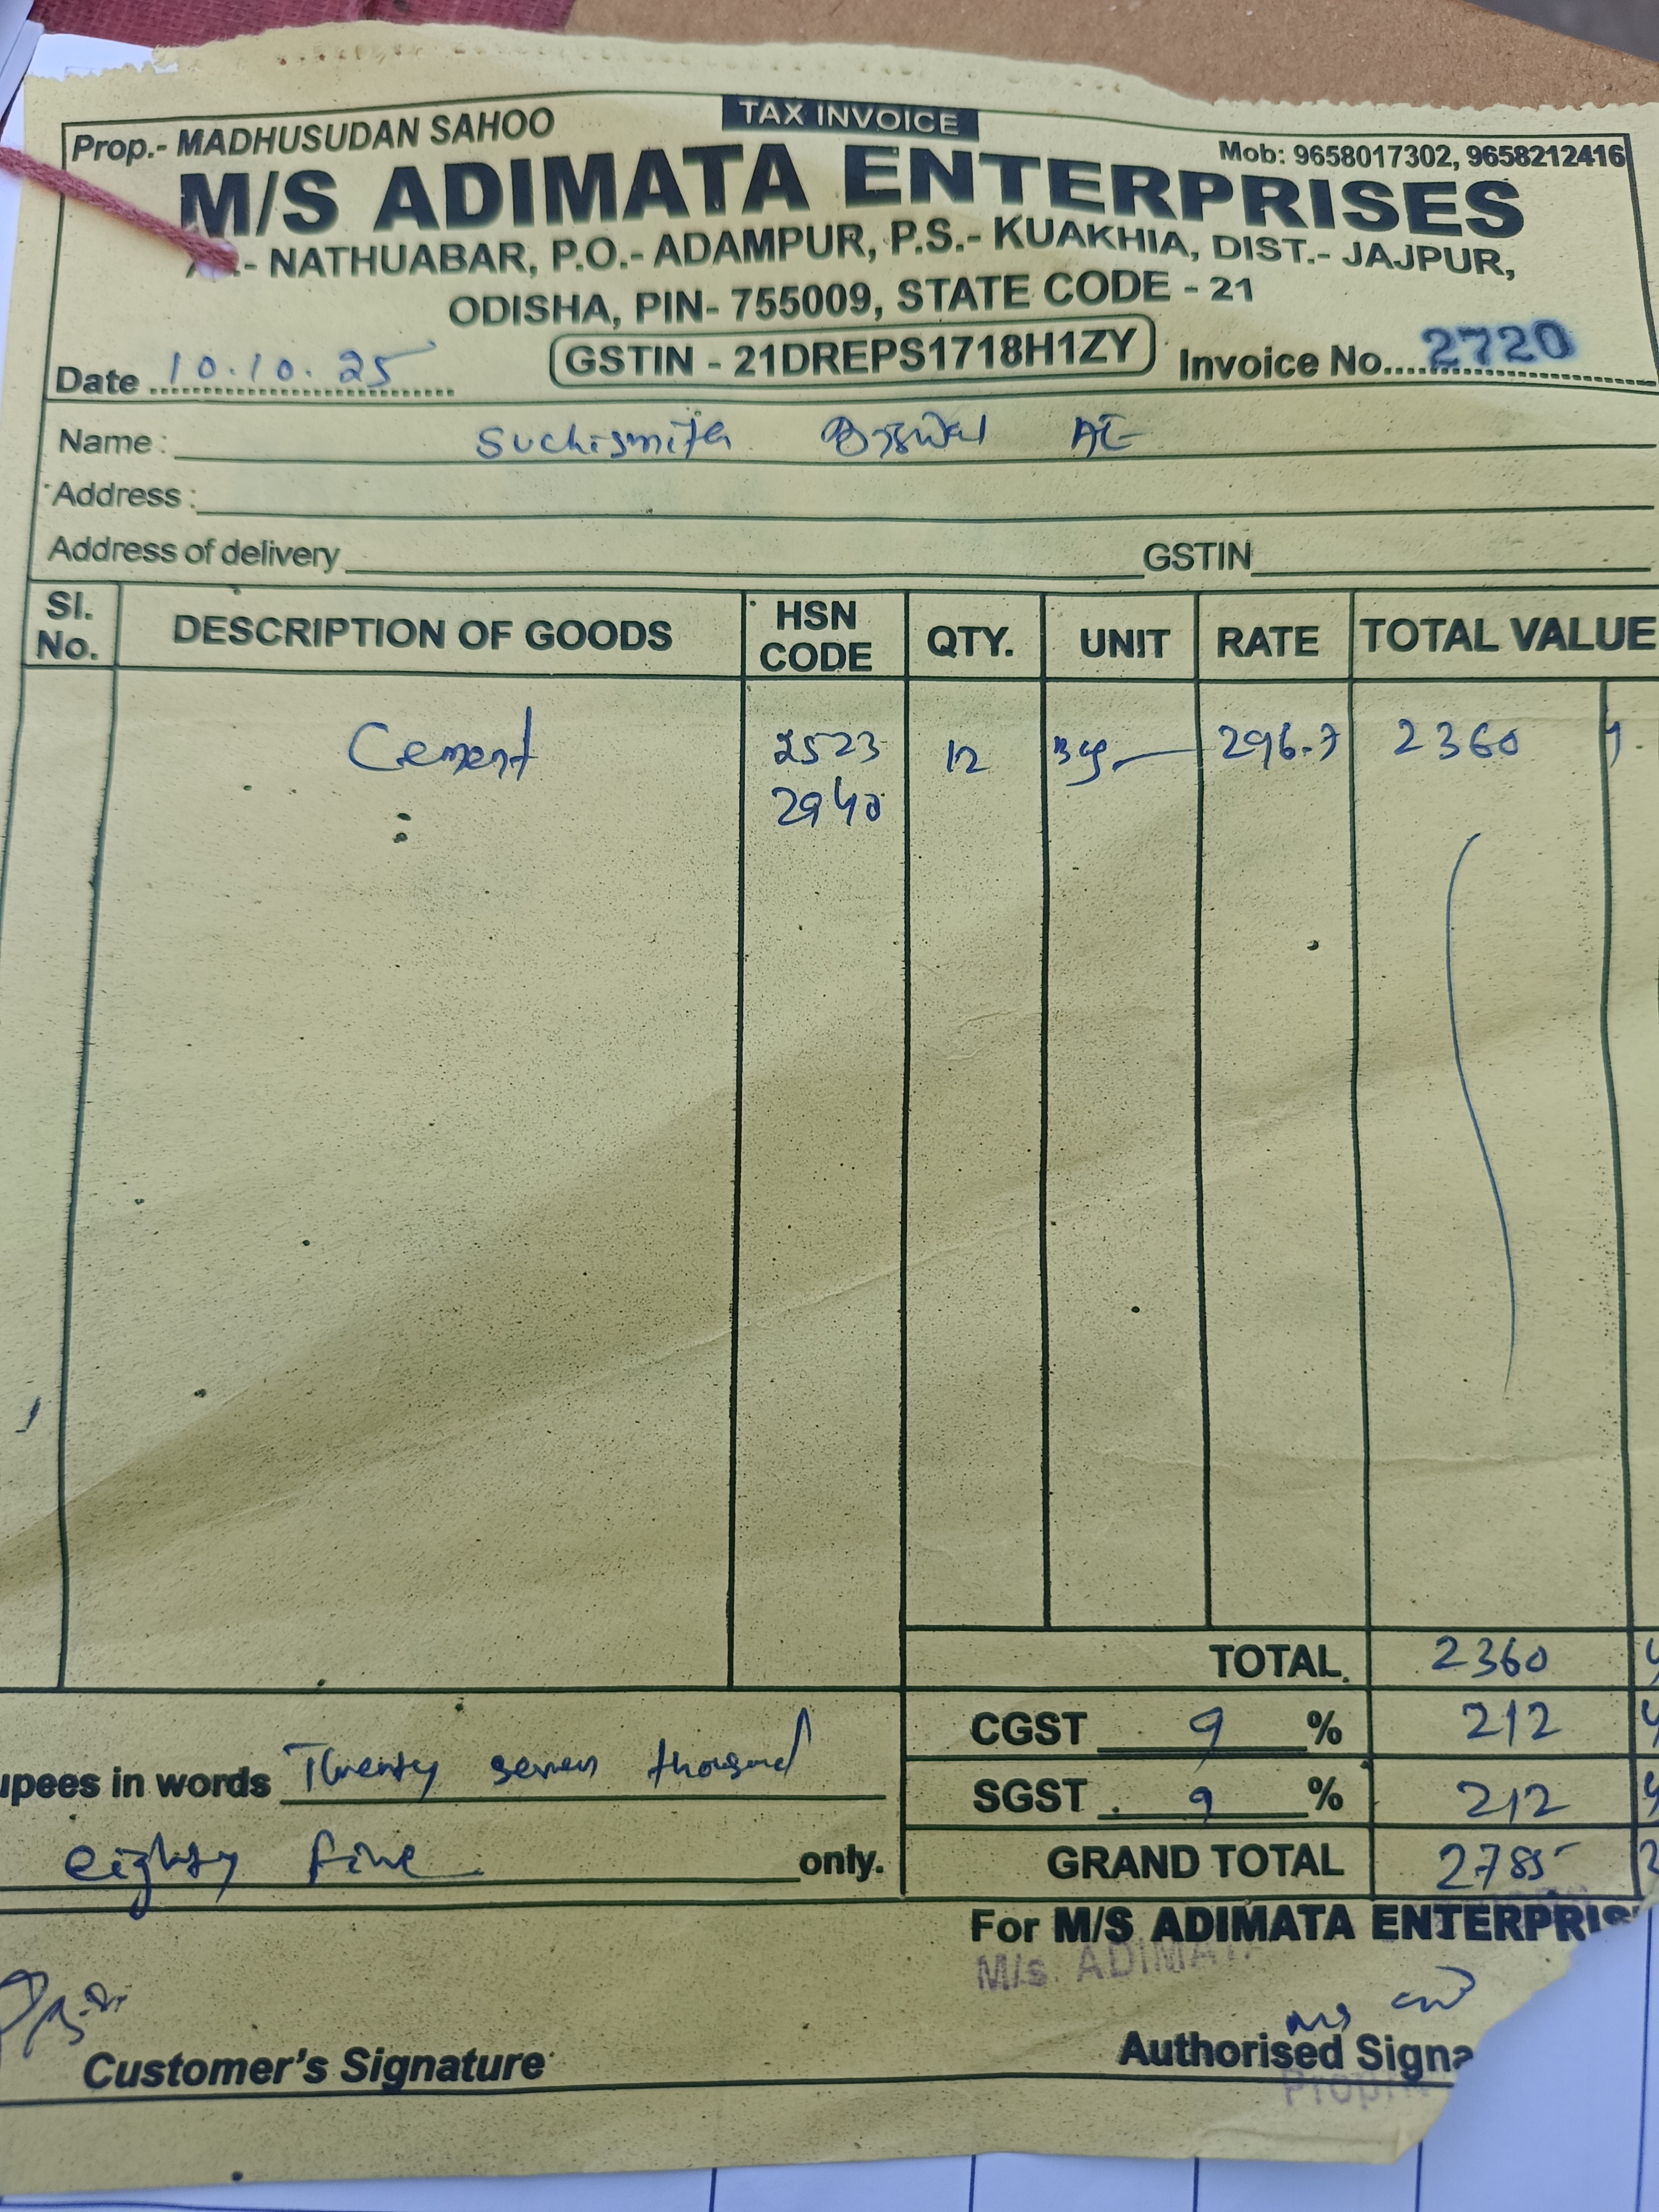 TAX INVOICE
Prop.- MADHUSUDAN SAHOO
Mob: 9658017302, 9658212416
M/S ADIMATA ENTERPRISES
- NATHUABAR, P.O.- ADAMPUR, P.S.- KUAKHIA, DIST.- JAJPUR,
ODISHA, PIN- 755009, STATE CODE - 21
Date 10.10.25 GSTIN - 21DREPS1718H1ZY Invoice No. 2720
Name : Suchismita
Address :
Address of delivery GSTIN
Sl. No. DESCRIPTION OF GOODS HSN CODE QTY. UNIT RATE TOTAL VALUE
Cement 2523 12 296.7 2360
2940
TOTAL 2360
CGST 9 % 212
upees in words Twenty seven thousand
SGST 9 % 212
eighty five only.
GRAND TOTAL 2785
For M/S ADIMATA ENTERPRIS
M/s. ADIMATA
Customer's Signature
Authorised Signa